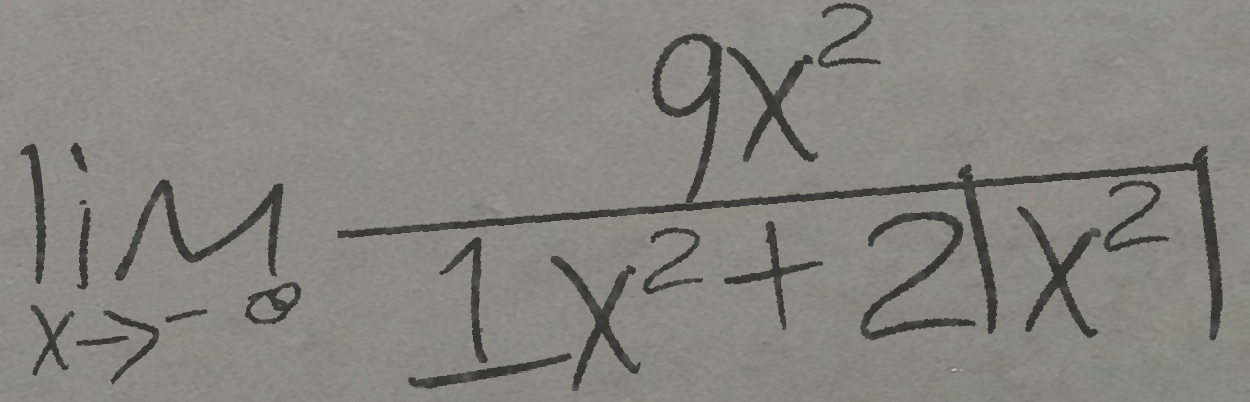 \lim_{x \to -\infty} \frac{9x^2}{1x^2 + 2|x^2|}